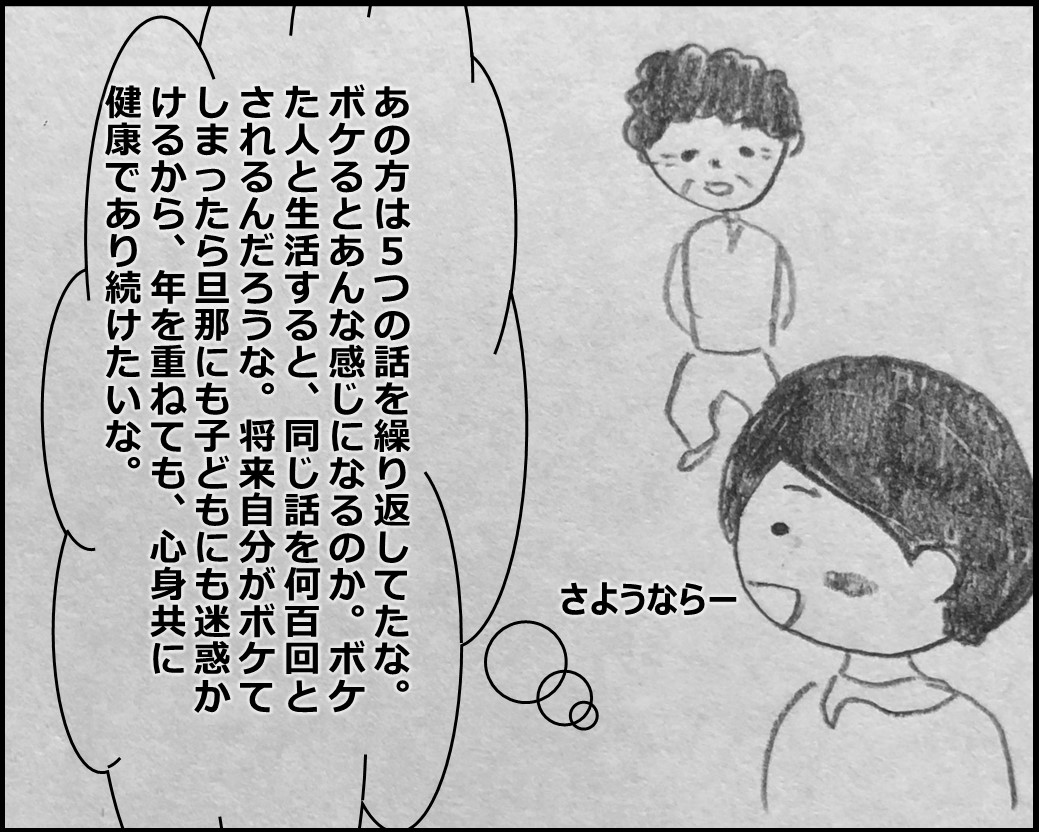 あの方は5つの話を繰り返してたな。
ボケるとあんな感じになるのか。ボケ
た人と生活すると、同じ話を何百回と
されるんだろうな。将来自分がボケて
しまったら旦那にも子どもにも迷惑か
けるから、年を重ねても、心身共に
健康であり続けたいな。
さようならー